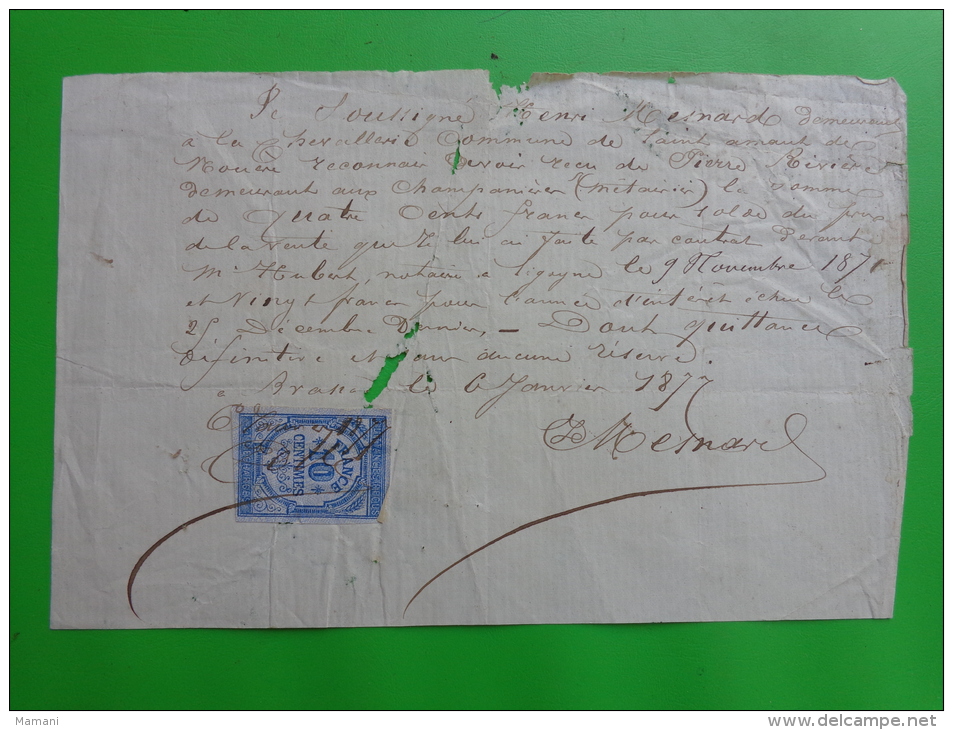 Je Soussigné Henri Mesnard demeurant
à la Chevallerie Commune de Saint amant de
Nouère reconnais devoir recu de Pierre Rivière
demeurant aux Champanières (métairie) la somme
de Quatre Cents francs pour solde du prix
de la vente que Je lui ai faite par contrat devant
Mr Hubert, notaire a le 9 Novembre 187
et Vingt francs pour l'année d'intérêt échue le
25 Décembre Dernier, — Dont quittance
définitive et sans aucune réserve.
a le 6 Janvier 1877
HMesnard
FRANCE
10
CENTIMES
Mamani
http://www.delcampe.net